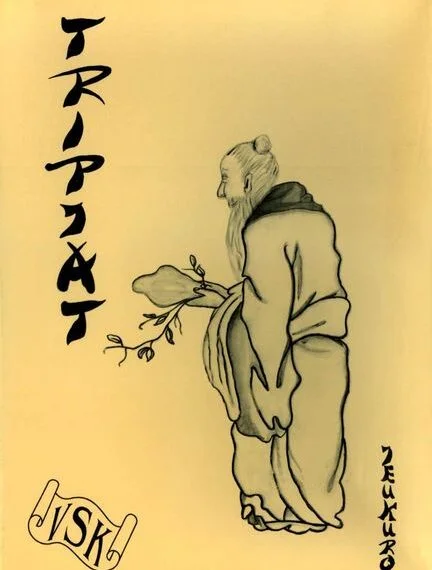 TRIPJAT
VSK
JEUKURO